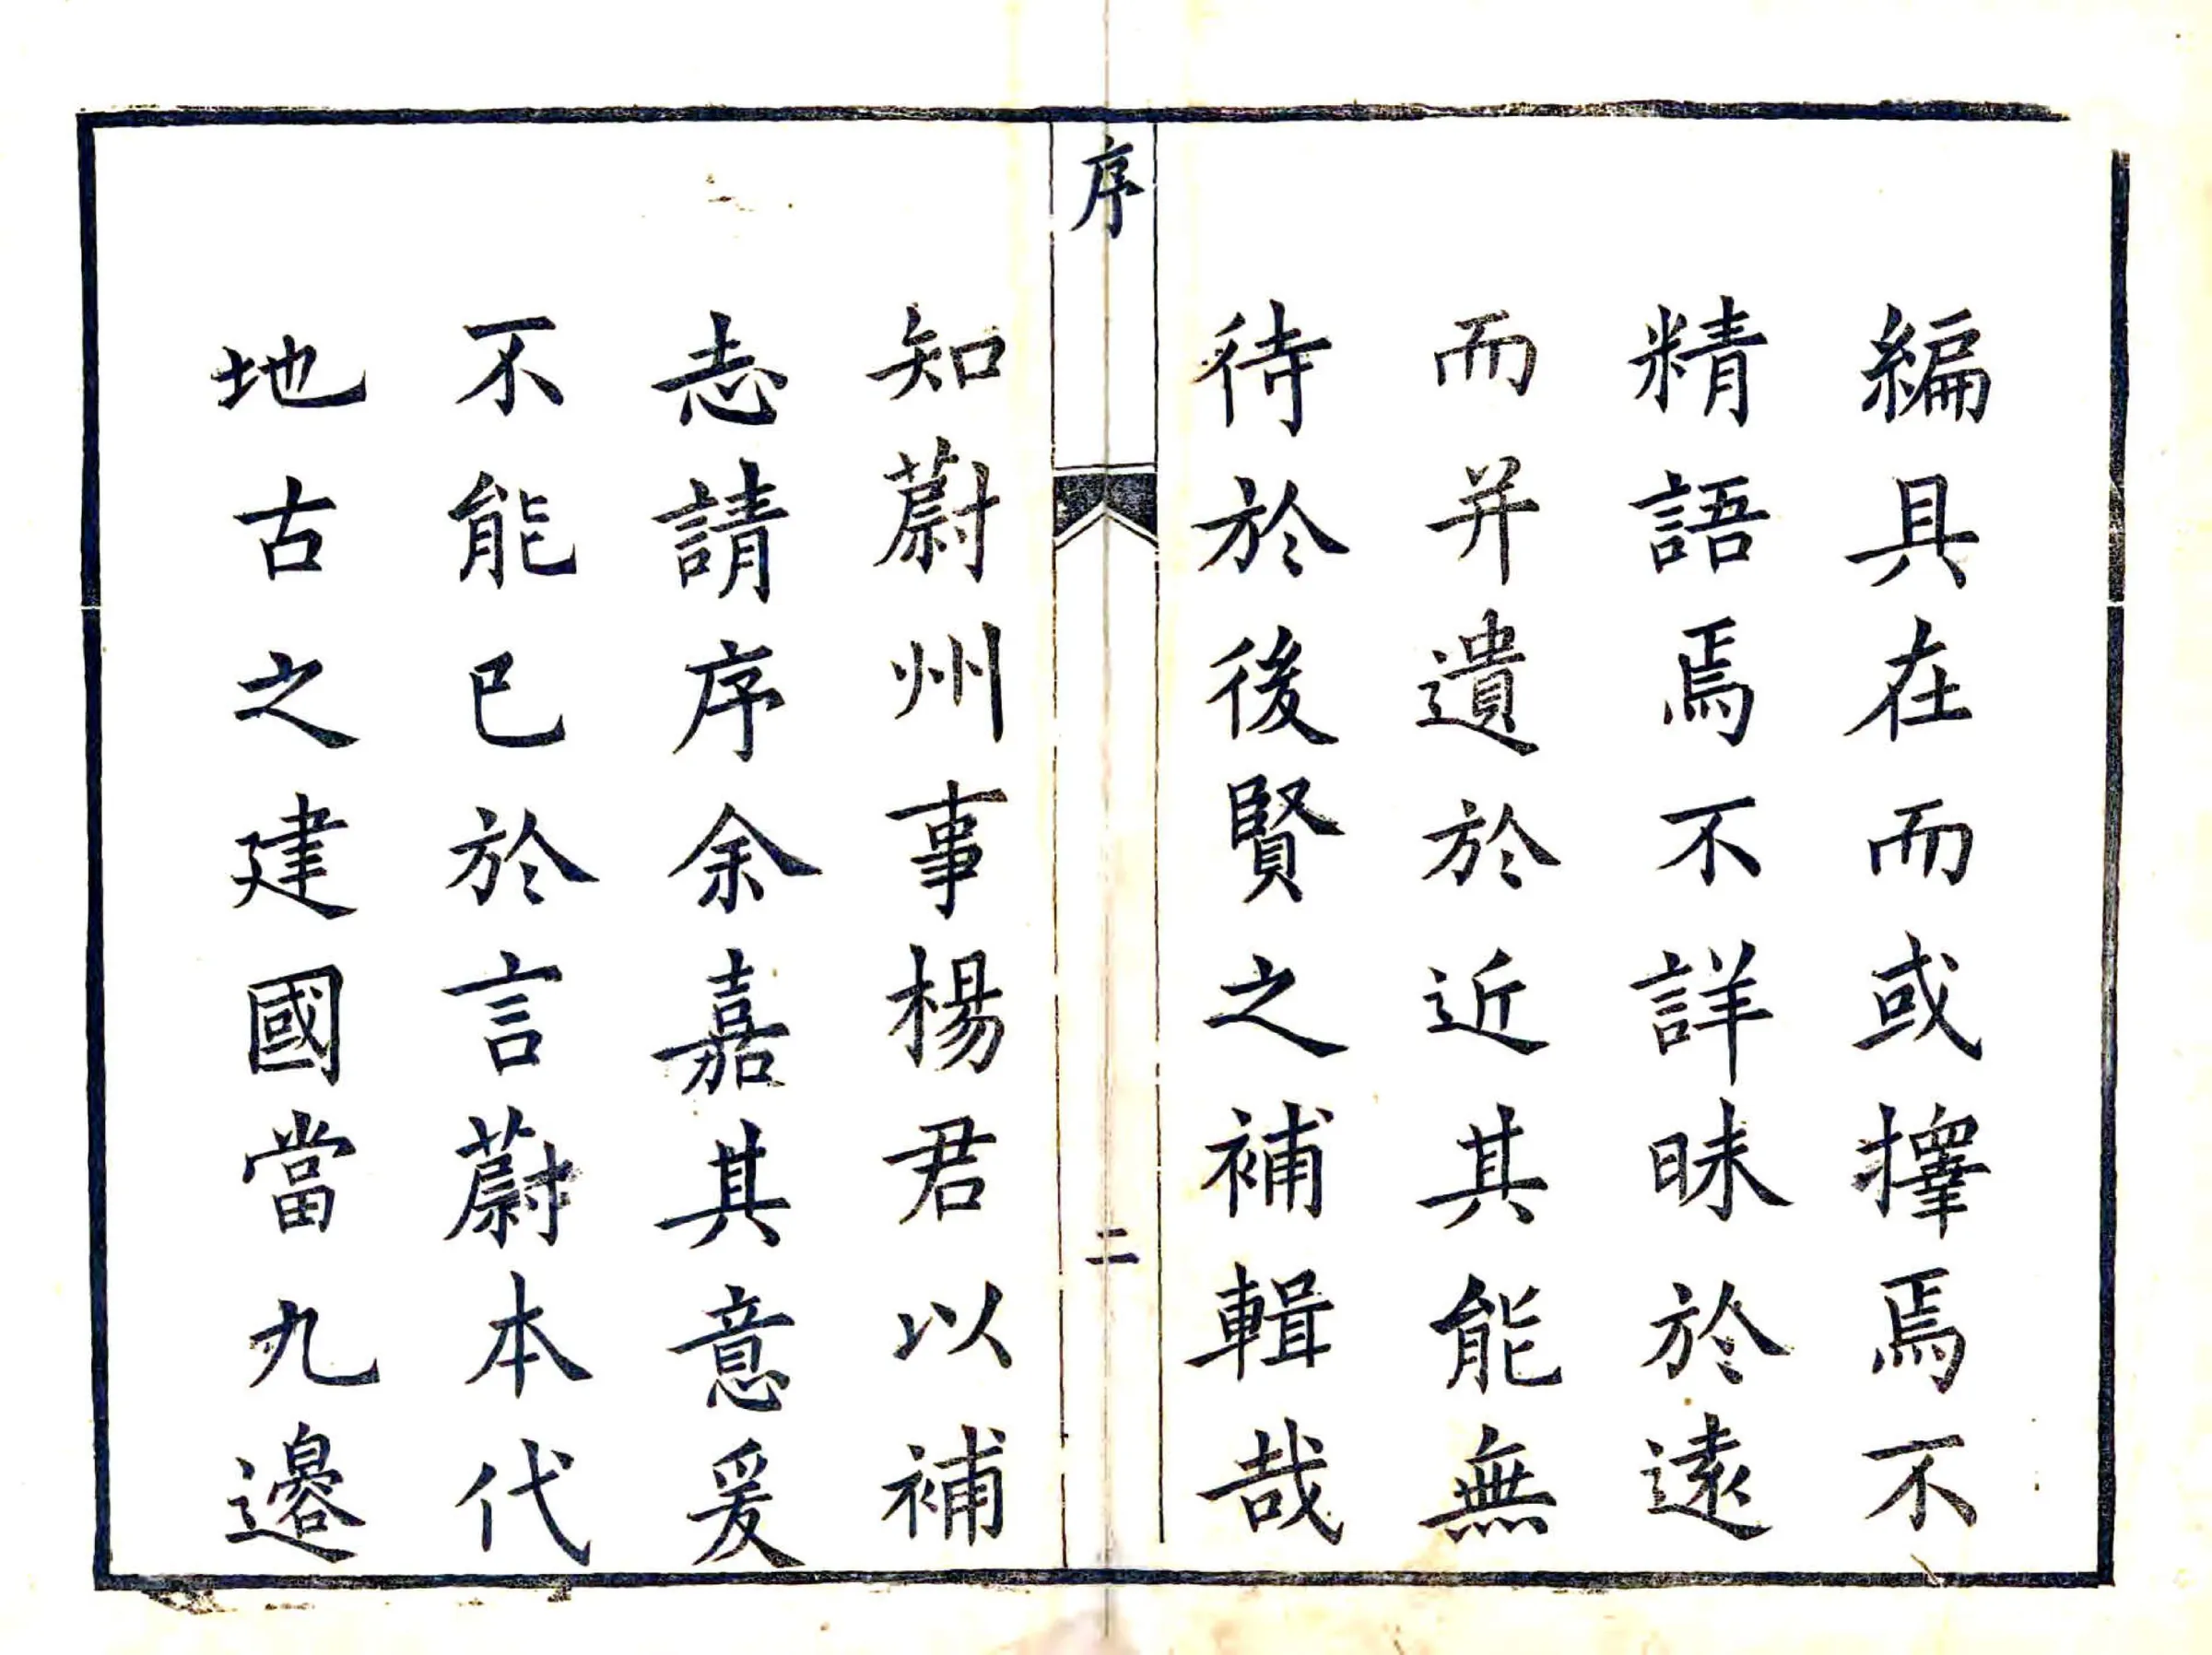 編具在而或擇焉不
精語焉不詳昧於遠
而并遺於近其能無
待於後賢之補輯哉
序
二
知蔚州事楊君以補
志請序余嘉其意爰
不能已於言蔚本代
地古之建國當九邊